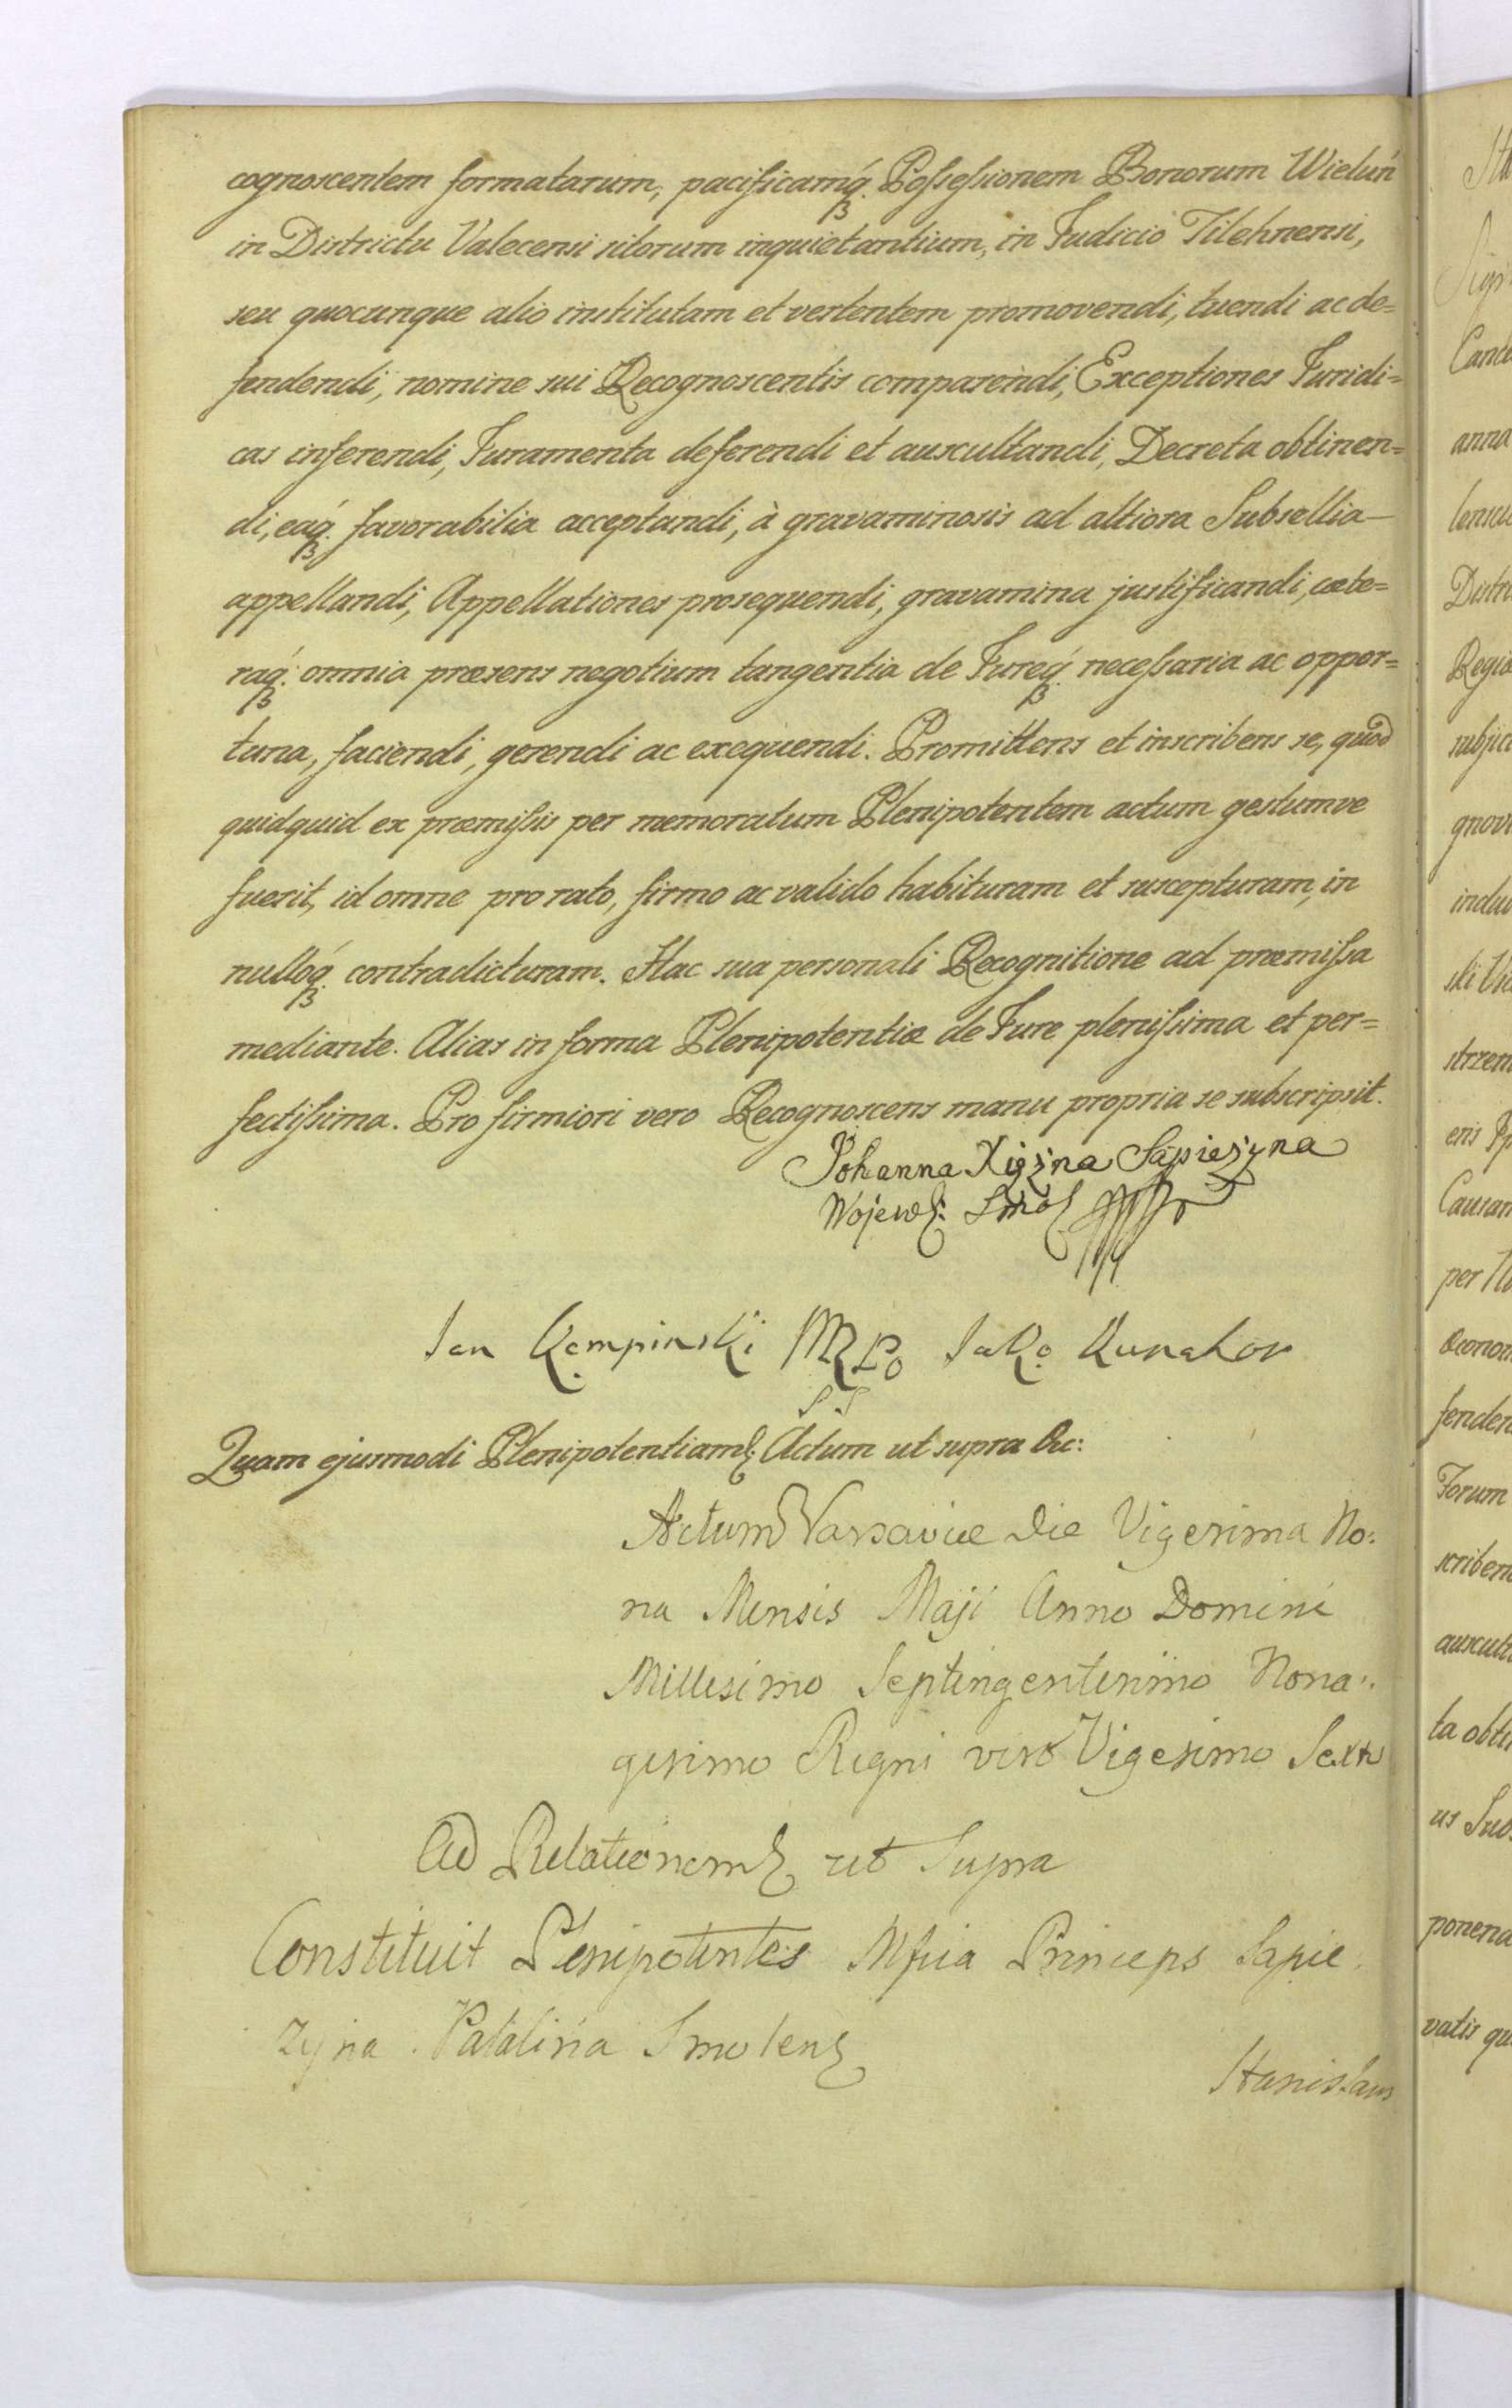 cognoscentem formatarum, pacificamq́ꝫ Poſseſsionem Bonorum Wieluń
in Districtu Valecensi sitorum inquietantium, in Judicio Tilehnensi,
seu quocunque alio institutam et vertentem promovendi, tuendi ac de=
fendendi, nomine sui Recognoscentis comparendi, Exceptiones Juridi=
cas inferendi, Juramenta deferendi et auscultandi, Decreta obtinen=
di, eaq́ꝫ favorabilia acceptandi, à gravaminosis ad altiora Subsellia
appellandi, Appellationes prosequendi, gravamina justificandi, cæte=
raq́ꝫ omnia præsens negotium tangentia de Jureq́ꝫ neceſsaria ac oppor=
tuna, faciendi, gerendi ac exequendi. Promittens et inscribens se, quod
quidquid ex præmiſsis per memoratum Plenipotentem actum gestumve
fuerit, id omne pro rato, firmo ac valido habituram et suscepturam, in
nulloq́ꝫ contradicturam. Hac sua personali Recognitione ad præmiſsa
mediante. Alias in forma Plenipotentiæ de Jure pleniſsima et per=
fectiſsima. Pro firmiori vero Recognoscens manu propria se subscripsit.
Johanna Xiężna Sapieżyna
Wojew: Smol
Jan Kempinski Jako Kurator
Quam ejusmodi Plenipotentiam Actum ut supra &c:
Actum Varsaviæ Die Vigesima No:
na Mensis Maji Anno Domini
Millesimo Septingentesimo Nona:
gesimo Regni vero Vigesimo Sexto
Ad Relationem ut Supra
Constituit Plenipotentes Princeps Sapie
zyna Palatina Smolen
Stanislaus